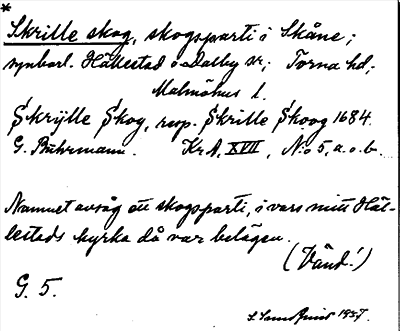 *
Skrille skog, skogsparti i Skåne;
synbarl. Hällestad o Dalby sn; Torna hd;
Malmöhus l.
Skrÿlle Skog, resp. Skrille Skoog 1684.
G. Buhrmann. Kr. A, XVII, N:o 5, a. o. b.
Namnet avsåg ett skogsparti, i vars mitt Häl-
lestads kyrka då var belägen.
(Vänd!)
G. 5.
1937.